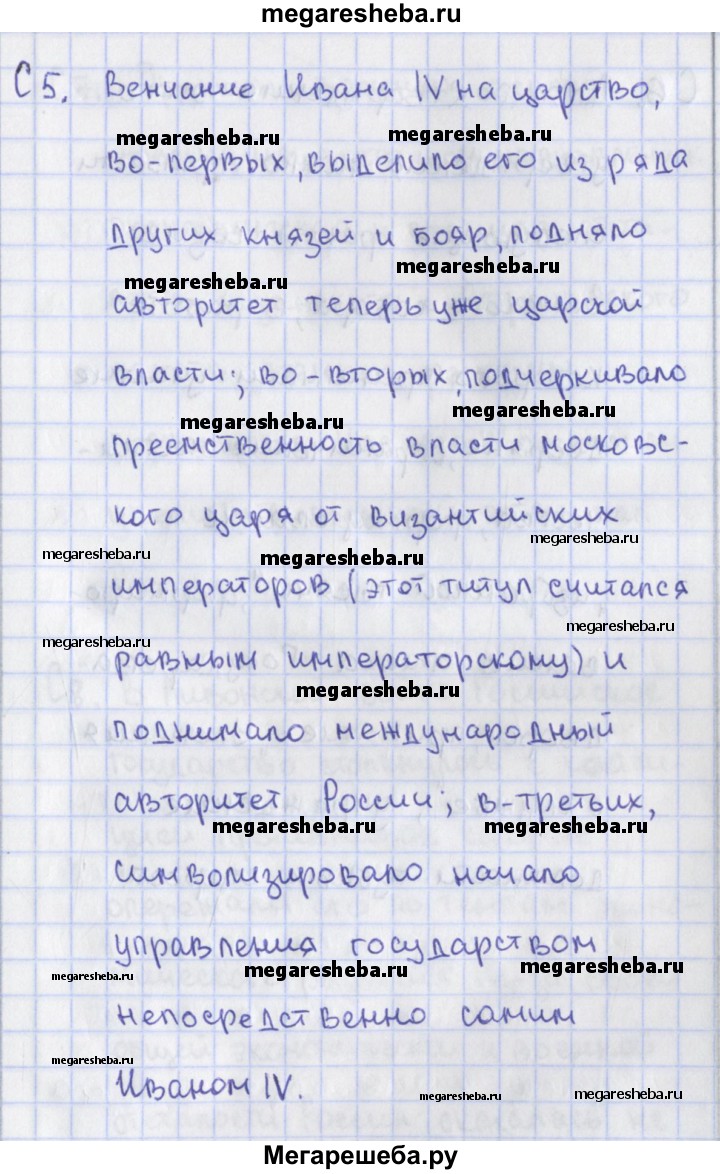 megaresheba.ru
С 5. Венчание Ивана IV на царство,
megaresheba.ru megaresheba.ru
во-первых, выделило его из ряда
других князей и бояр, подняло
megaresheba.ru megaresheba.ru
авторитет теперь уже царской
власти; во-вторых, подчеркивало
megaresheba.ru megaresheba.ru
преемственность власти московс-
кого царя от византийских
megaresheba.ru megaresheba.ru megaresheba.ru
императоров (этот титул считался
megaresheba.ru megaresheba.ru
равным императорскому) и
megaresheba.ru
поднимало международный
авторитет России; в-третьих,
megaresheba.ru megaresheba.ru
символизировало начало
управления государством
megaresheba.ru megaresheba.ru megaresheba.ru
непосредственно самим
megaresheba.ru
Иваном IV.
megaresheba.ru megaresheba.ru
Мегарешеба.ру